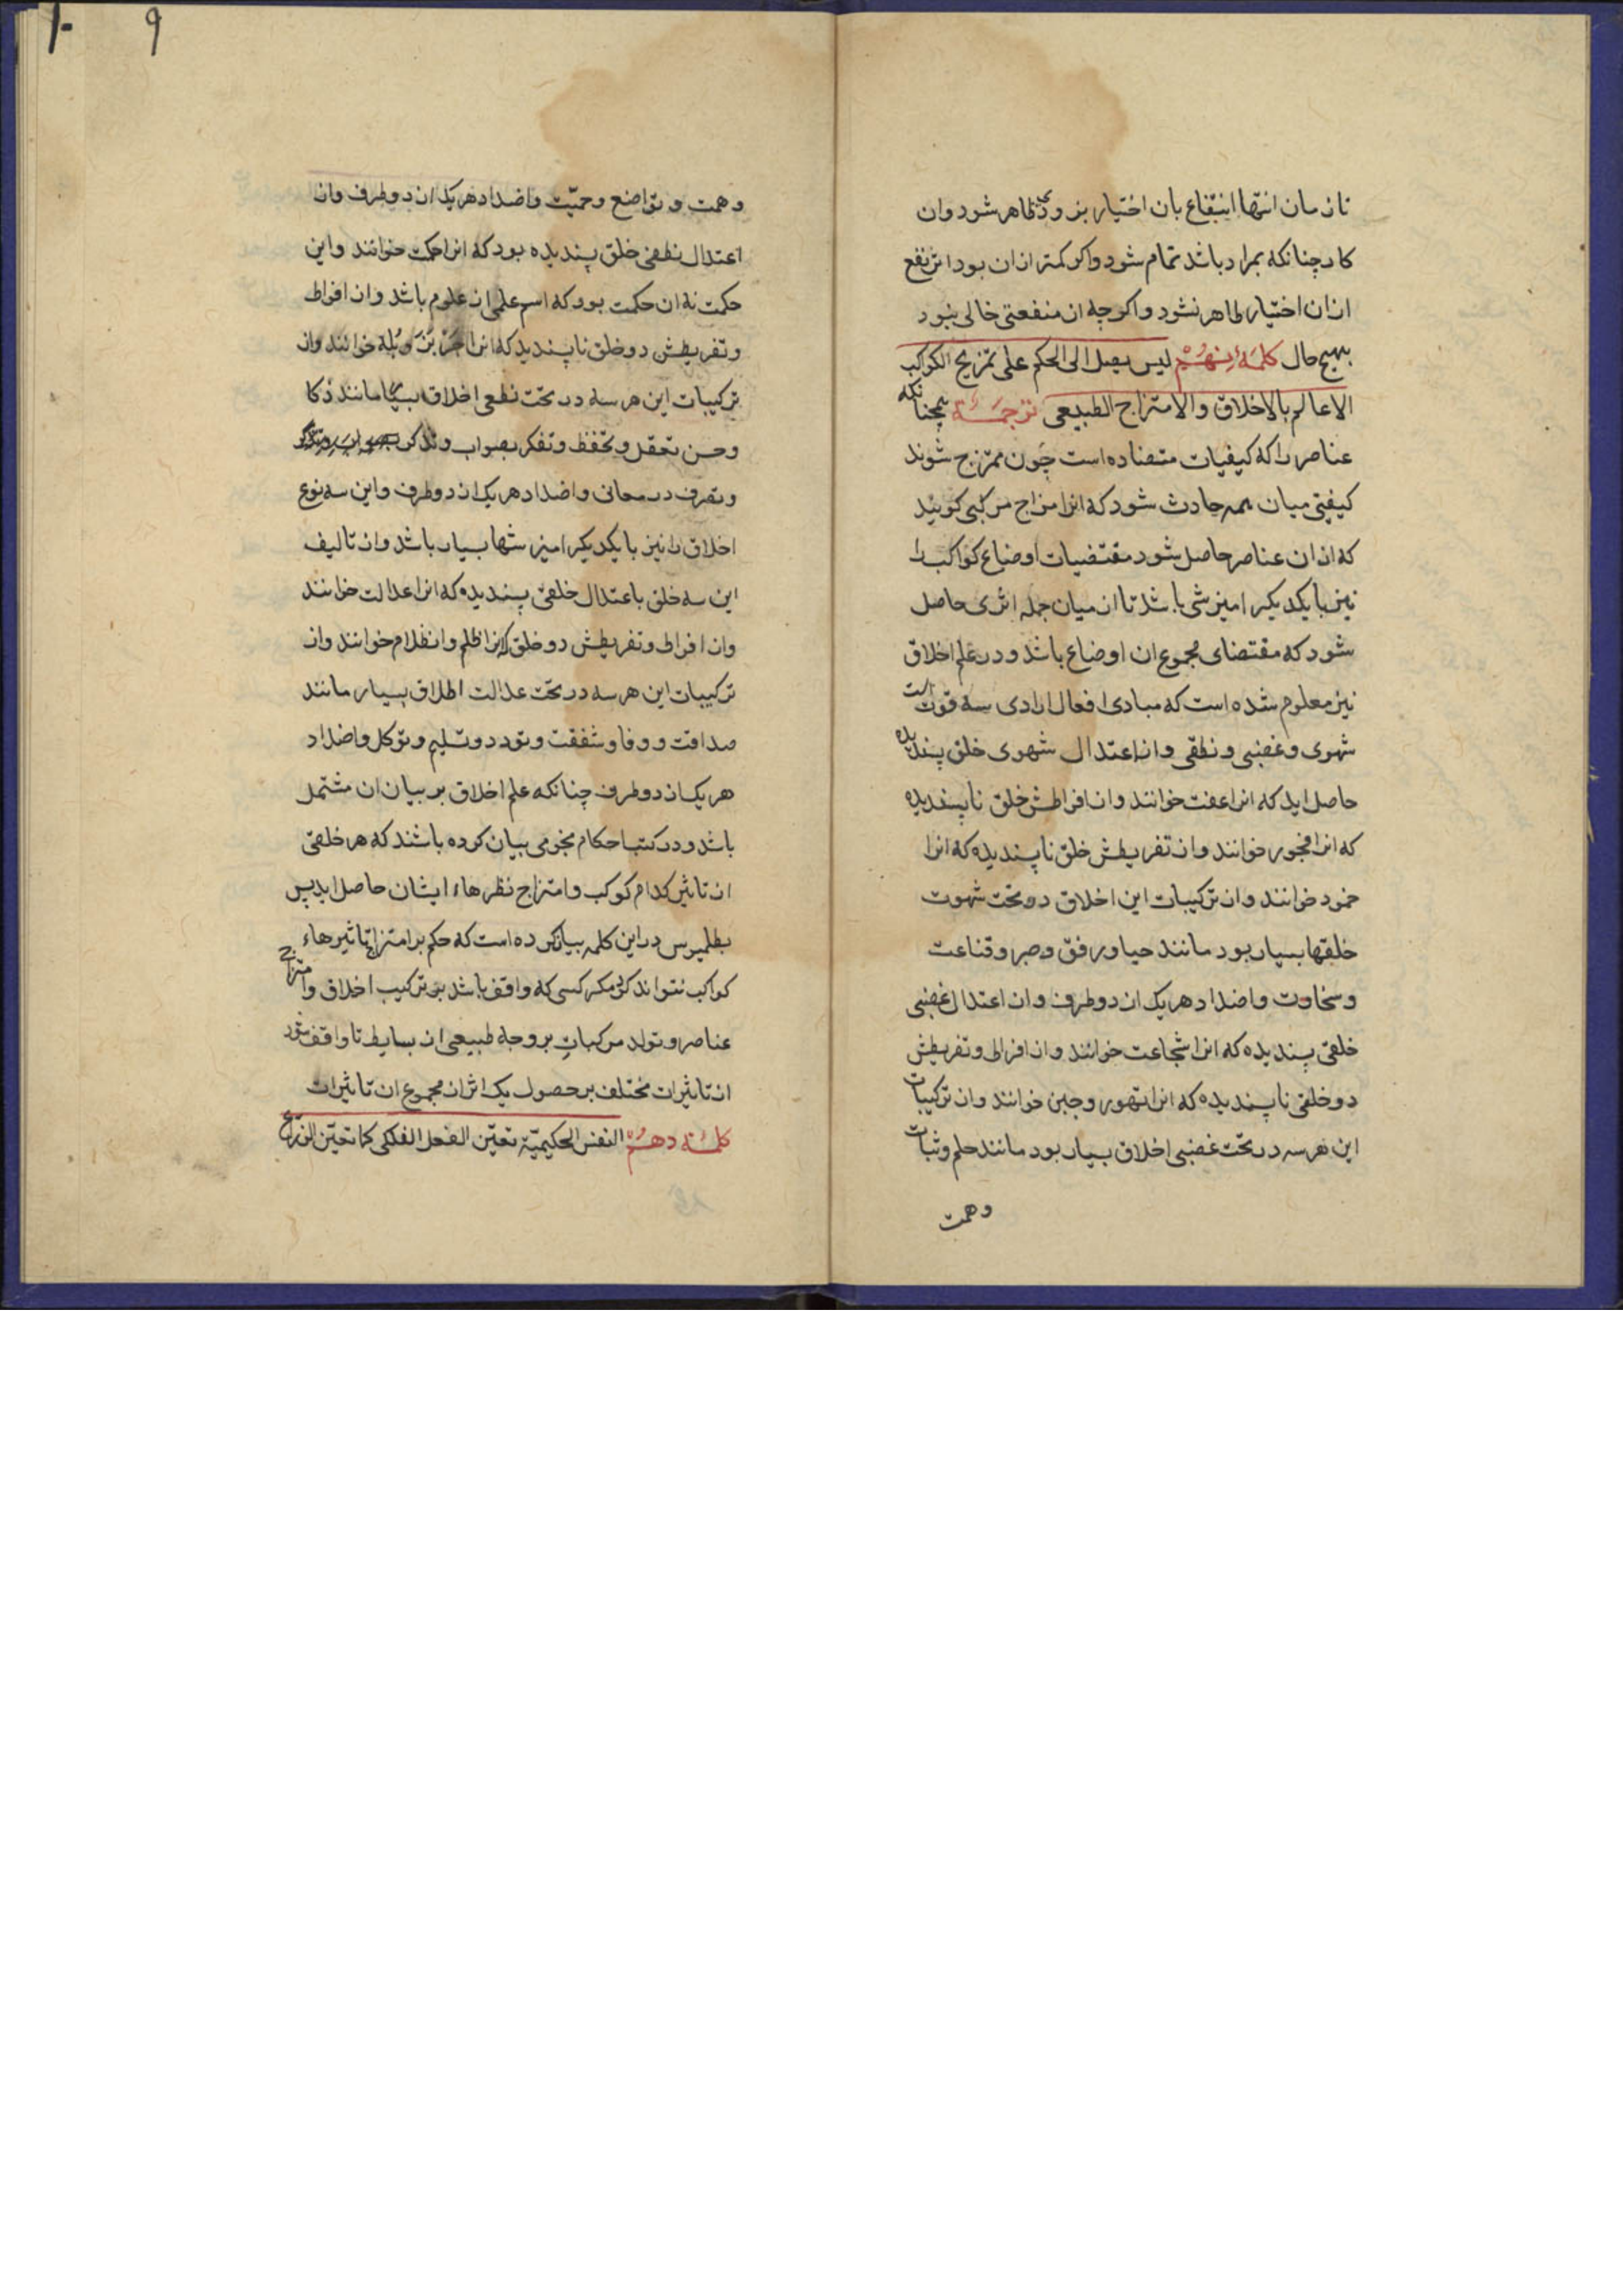 تا زمان انتها انتفاع بان اختیار بزودی ظاهر شود وان
کار چنانکه بمراد باشد تمام شود واکر کمتر ازان بود اثر نفع
ازان اختیار ظاهر نشود واکرچه از منفعتی خالی نبود
بهیچ حال کلمهٔ نهم لیس یصل الی الحکم علی تمزیج الکواکب
الا عالم بالاخلاق والامتزاج الطبیعی ترجمه همچنانکه
عناصر را که کیفیات متضاده است چون ممتزج شوند
کیفیتی میان همه حادث شود که انرا مزاج مرکبی کویند
که ازان عناصر حاصل شود مقتضیات اوضاع کواکب را
نیز با یکدیکر امیزشی باشد تا ازمیان جمله اثری حاصل
شود که مقتضای مجموع ان اوضاع باشد ودر علم اخلاق
نیز معلوم شده است که مبادی افعال ارادی سه قوتست
شهوی وغضبی ونطقی واز اعتدال شهوی خلق پسندیده
حاصل اید که انرا عفت خوانند واز افراطش خلق ناپسندیده
که انرا فجور خوانند واز تفریطش خلق ناپسندیده که انرا
خمود خوانند واز ترکیبات این اخلاق در تحت شهوت
خلقها بسیار بود مانند حیا ورفق وصبر وقناعت
وسخاوت واضداد هر یک از دو طرف واز اعتدال غضبی
خلقی پسندیده که انرا شجاعت خوانند واز افراط وتفریطش
دو خلقی ناپسندیده که انرا تهور وجبن خوانند واز ترکیبات
این هر سه در تحت غضبی اخلاق بسیار بود مانند حلم وثبات
وهمت
۹
۱۰
وهمت وتواضع وحمیّت واضداد هر یک از دو طرف واز
اعتدال نطقی خلق پسندیده بود که انرا حکمت خوانند واین
حکمت نه ان حکمت بود که اسم علمی از علوم باشد واز افراط
وتفریطش دو خلق ناپسندیده که انرا جربزه وبله خوانند واز
ترکیبات این هر سه در تحت نطقی اخلاق بسیار مانند ذکا
وحسن تعقل وتحفظ وتفکر بصواب وتذکر
وتصرف در معانی واضداد هر یک از دو طرف واین سه نوع
اخلاق را نیز با یکدیکر امیزشها بسیار باشد واز تالیف
این سه خلق باعتدال خلقی پسندیده که انرا عدالت خوانند
واز افراط وتفریطش دو خلق که انرا ظلم وانظلام خوانند واز
ترکیبات این هر سه در تحت عدالت اخلاق بسیار مانند
صداقت ووفا وشفقت وتودد وتسلیم وتوکل واضداد
هر یک از دو طرف چنانکه علم اخلاق بر بیان ان مشتمل
باشد ودر کتب احکام نجومی بیان کرده باشند که هر خلقی
از تاثیر کدام کوکب وامتزاج نظرهاء ایشان حاصل اید پس
بطلمیوس در این کلمه بیان کرده است که حکم بر امتزاج تاثیرهاء
کواکب نتواند کرد مکر کسی که واقف باشد بر ترکیب اخلاق وامتزاج
عناصر وتولد مرکبات بر وجه طبیعی از بسایط تا واقف شود
از تاثیرات مختلف بر حصول یک اثر از مجموع ان تاثیرات
کلمهٔ دهم النفس الحکیمیّة تعیّن الفعل الفلکی کما تعیّن الزرّاع